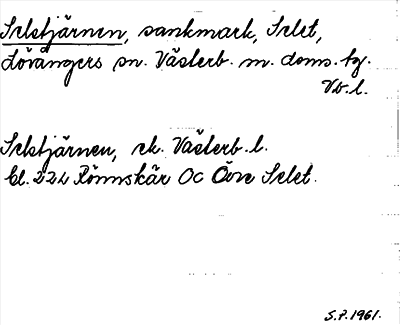 Selstjärnen, sankmark, Selet,
Lövångers sn. Västerb. m. doms. tg.
Vb. l.
Selstjärnen, ek. Västerb. l.
bl. 222 Rönnskär Oc Övre Selet.
S.P. 1961.